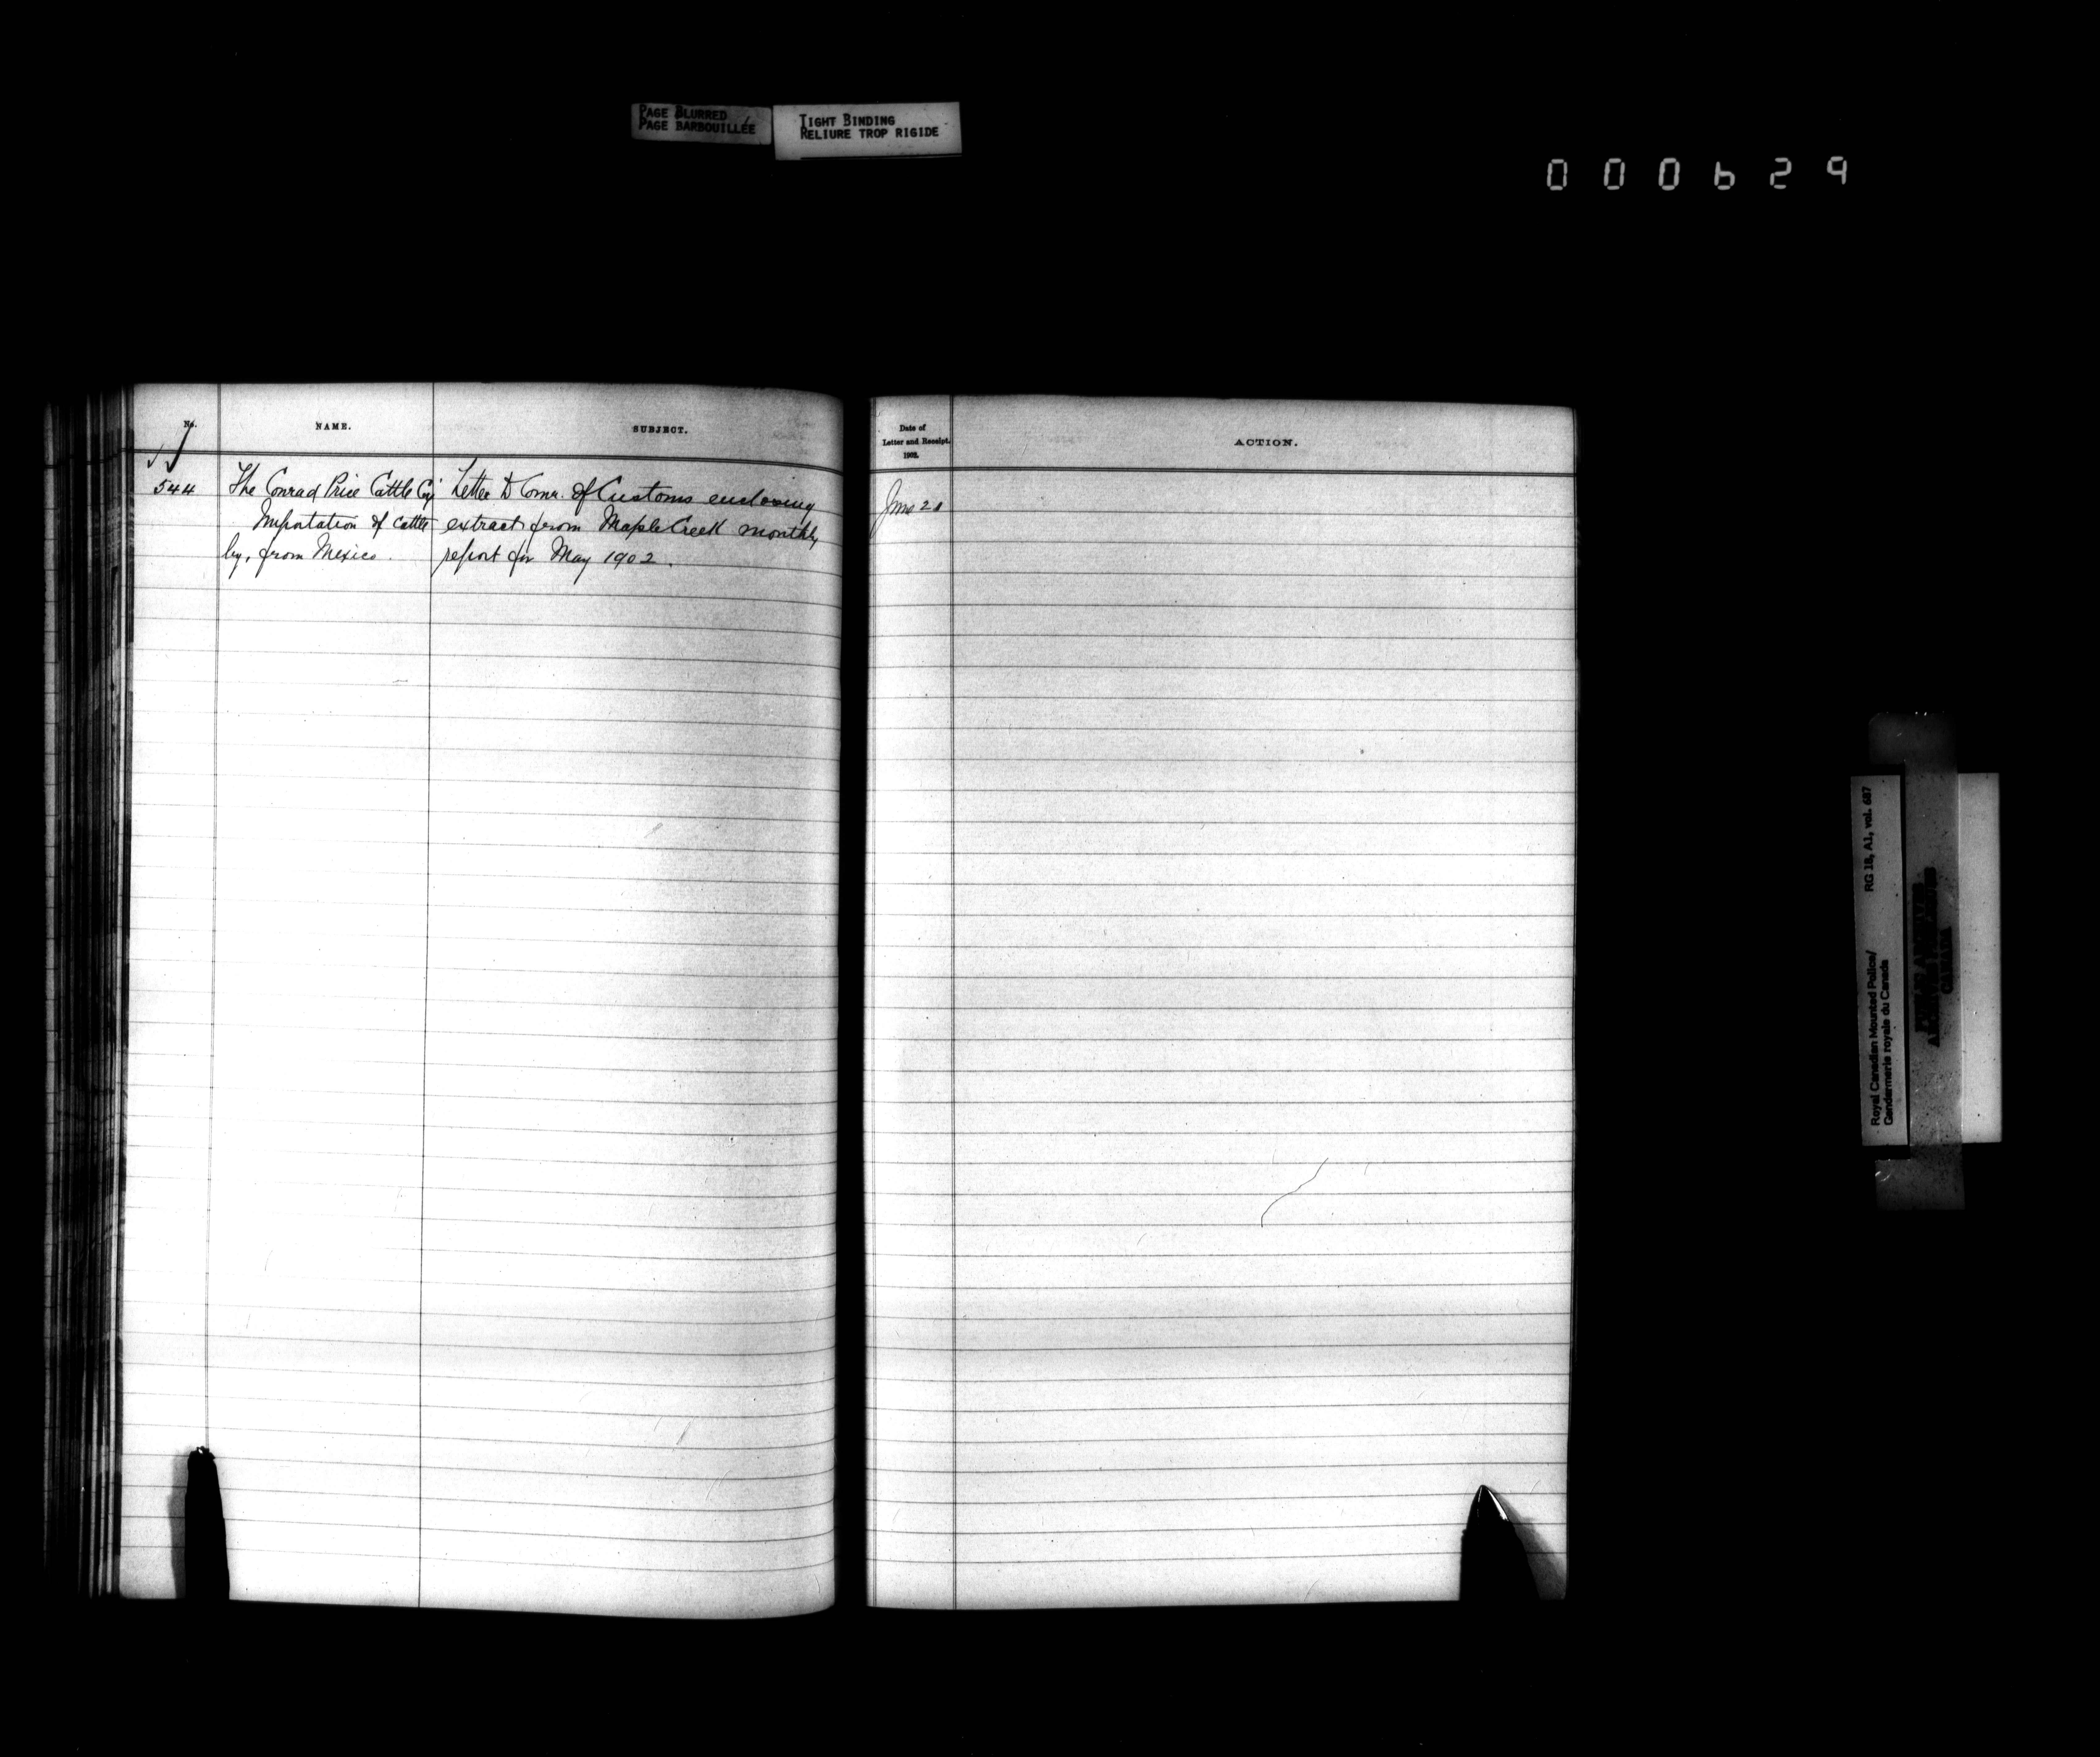 PAGE BLURRED
PAGE BARBOUILLÉE
TIGHT BINDING
RELIURE TROP RIGIDE
000629
No.
NAME.
SUBJECT.
Date of
Letter and Receipt.
1902.
ACTION.
544
The Conrad Price Cattle Coy
Importation of cattle
by, from Mexico.
Letter to Comr. of Customs enclosing
extract from Maple Creek monthly
report for May 1902.
June 21
Royal Canadian Mounted Police/
Gendarmerie royale du Canada
RG 18, A1, vol. 687
PUBLIC ARCHIVES
ARCHIVES PUBLIQUES
CANADA